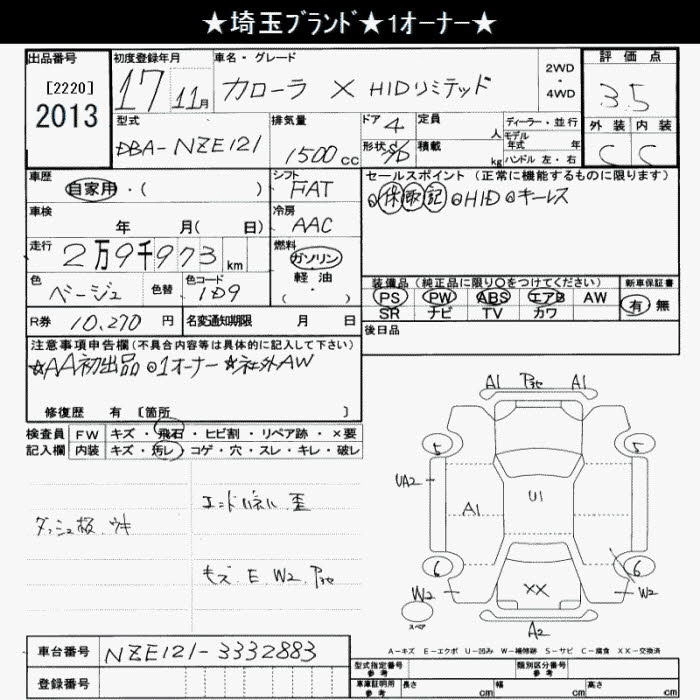 ★埼玉ブランド★1オーナー★
出品番号 初度登録年月 車名・グレード 2WD・4WD 評価点
[2220] 2013 17 11月 カローラ X HIDリミテッド 3.5
型式 排気量 ドア 4 定員 人 ディーラー・並行 外装 内装
DBA-NZE121 1500cc 形状 積載 kg モデル年式 年式 ハンドル 左・右 C C
車歴 シフト セールスポイント (正常に機能するものに限ります)
自家用・( ) FAT ◎保取記 ◎HID ◎キーレス
車検 年 月(日) 冷房 AAC
走行 2万9千973km 燃料 ガソリン 軽・油 ( )
色 色替 色コード 装備品 (純正品に限り○をつけてください) 新車保証書
ベージュ 1D9 PS PW ABS エアB AW 有 無
SR ナビ TV カワ
R券 10,270円 名変通知期限 月 日 後日品
注意事項申告欄(不具合内容等は具体的に記入して下さい)
☆AA初出品 ◎1オーナー ☆社外AW
修復歴 有 [箇所 ]
検査員 FW キズ・飛石・ヒビ割・リペア跡・×要
記入欄 内装 キズ・汚レ・コゲ・穴・スレ・キレ・破レ
ダッシュ板.ウキ
エンドパネル 歪
キズ E W2
A1 A1
5 5
UA2 A1 U1
6 6
W2 XX W2
スペア A2
A-キズ E-エクボ U-凹み W-補修跡 S-サビ C-腐食 XX-交換済
車台番号 NZE121-3332883 型式指定番号 参考 類別区分番号 参考
登録番号 車庫証明用 参考 長さ cm 幅 cm 高さ cm